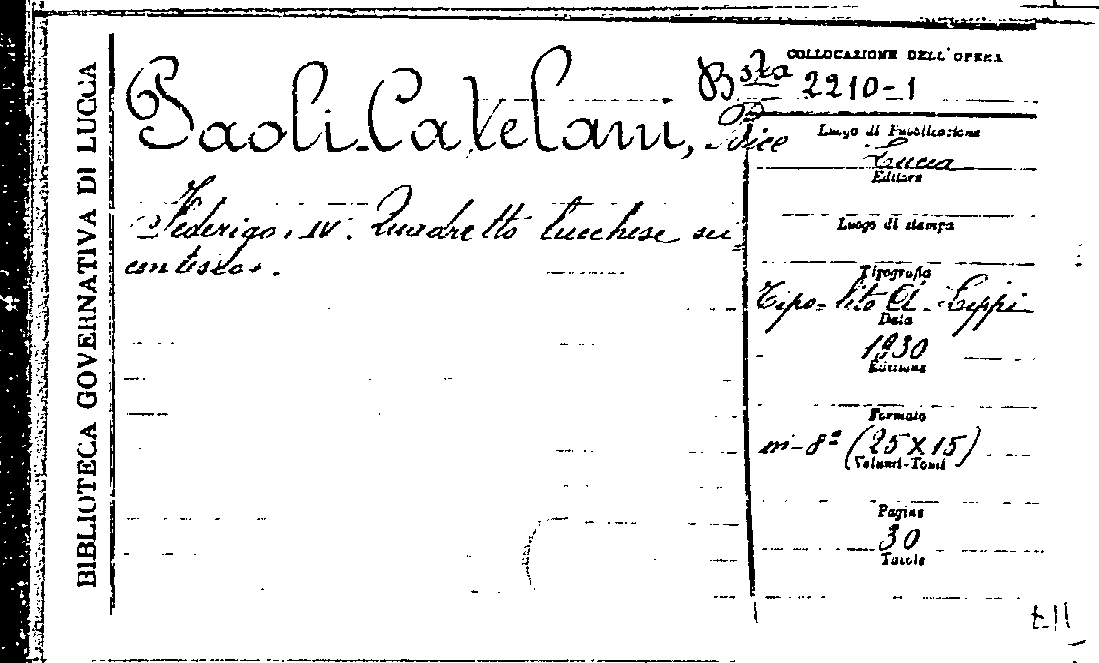 BIBLIOTECA GOVERNATIVA DI LUCCA
Paoli-Catelani, Bice
Federigo IV. Quadretto lucchese sei-
centesco.
COLLOCAZIONE DELL'OPERA
Bsta 2210-1
Luogo di Pubblicazione
Lucca
Editore
Luogo di stampa
Tipografia
Tipo-lito A. Lippi
Data
1930
Edizione
Formato
in-8° (25X15)
Volumi-Tomi
Pagine
30
Tavole